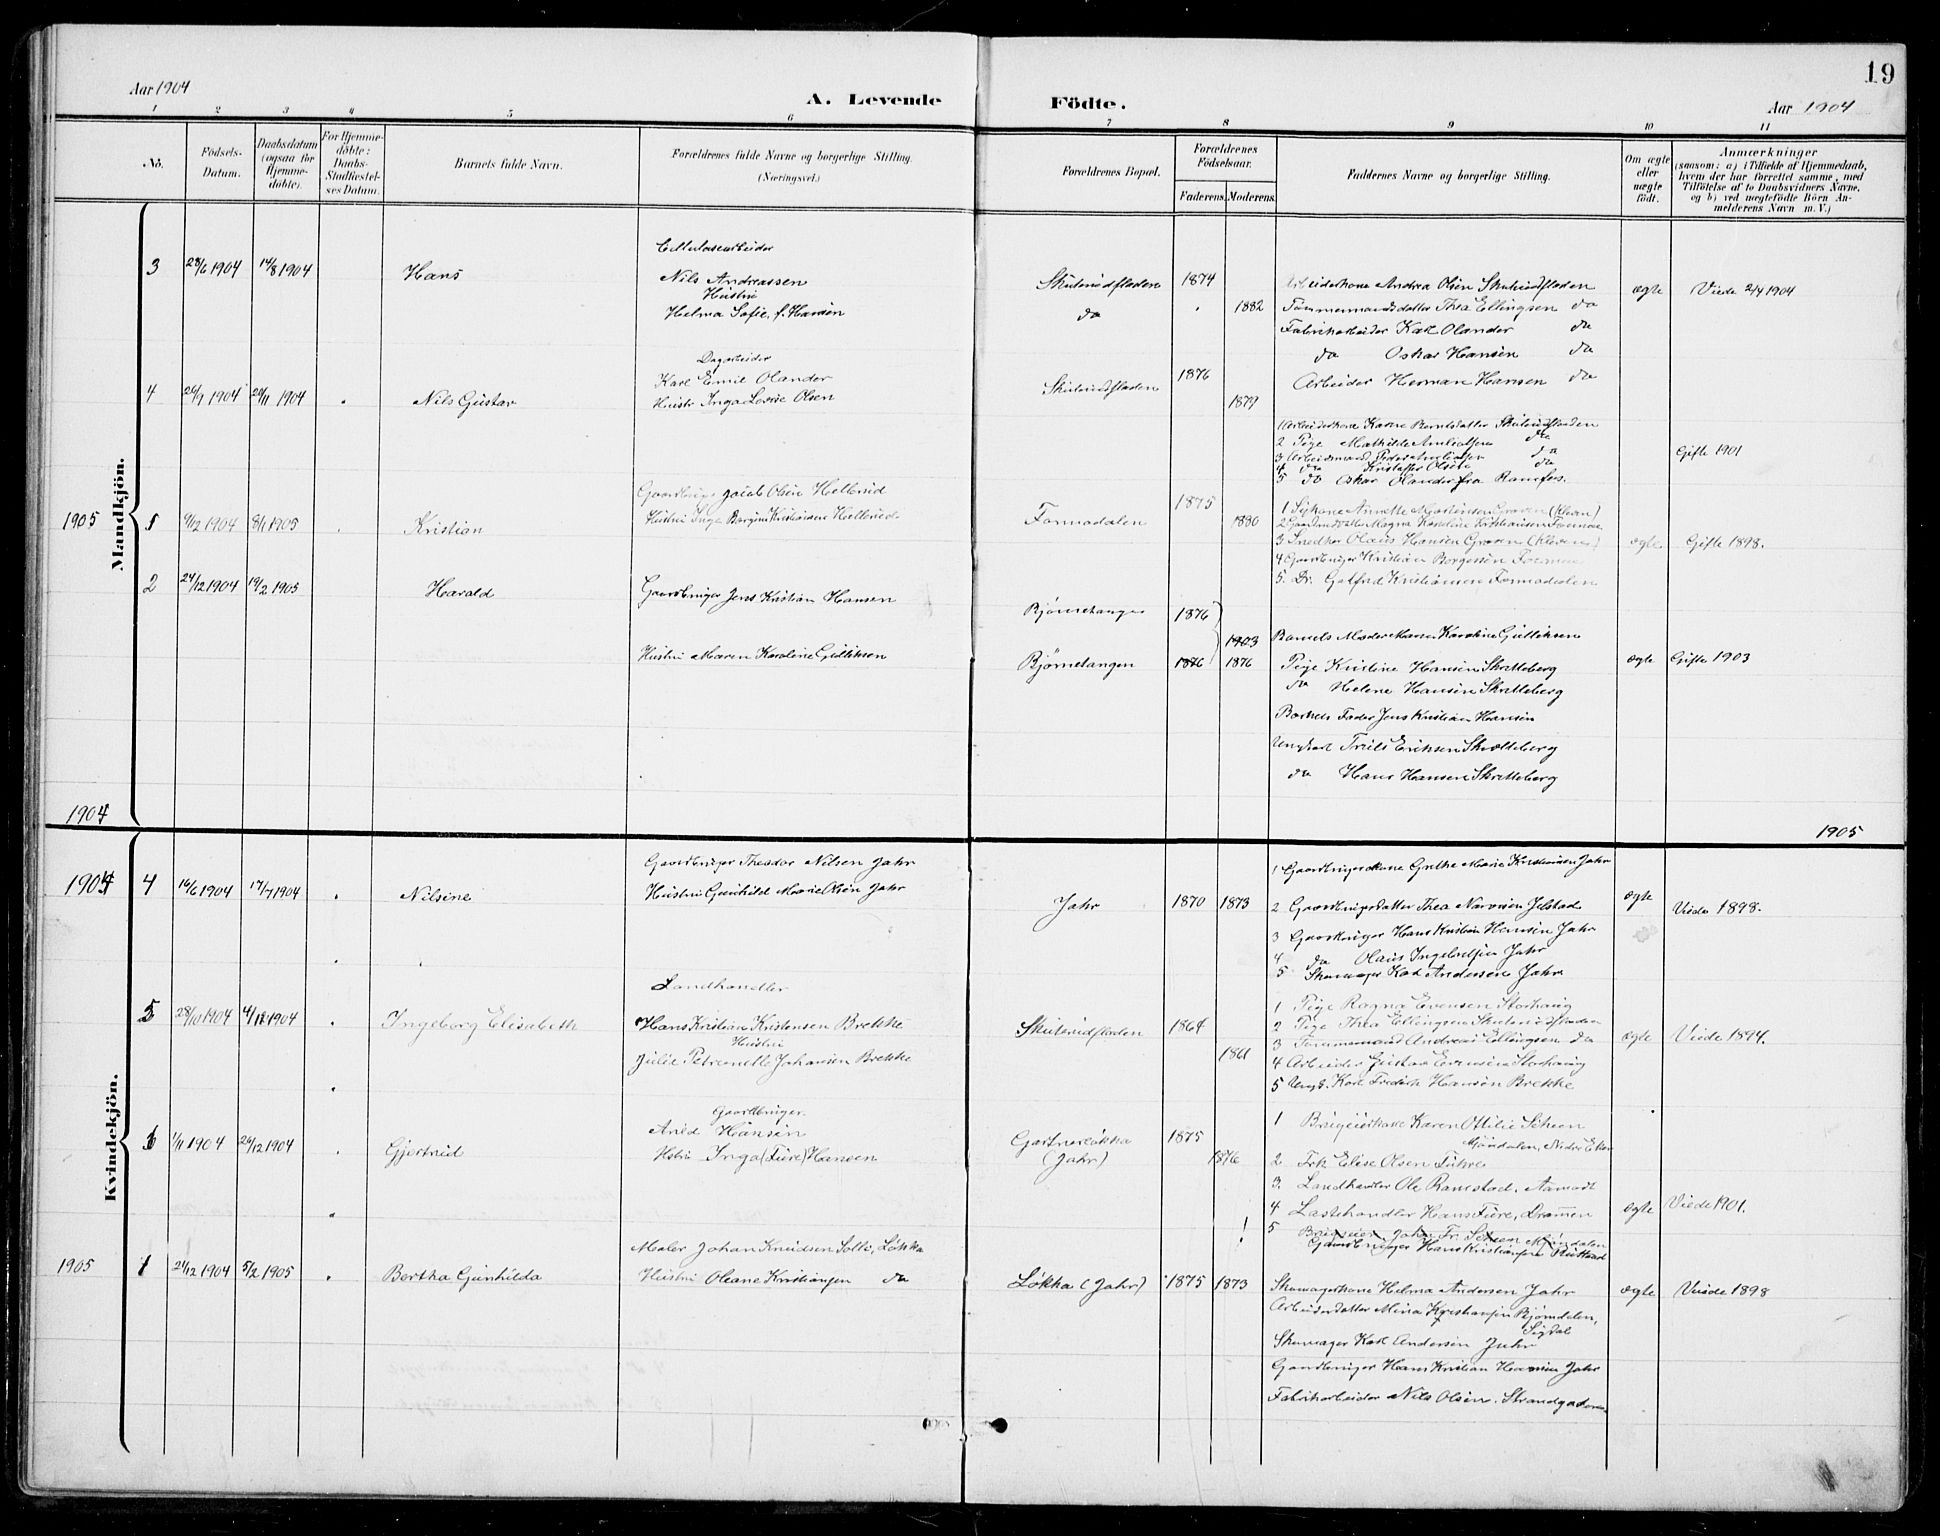 19
Aar 1904
A. Levende Födte.
Aar 1904
1 2 3 4 5 6 7 8 9 10 11
No.
Födsels-Datum.
Daabsdatum (ogsaa för Hjemmedöbte).
For Hjemmedöbte: Daabs-Stadfæstelses Datum.
Barnets fulde Navn.
Forældrenes fulde Navne og borgerlige Stilling. (Næringsvei.)
Forældrenes Bopæl.
Forældrenes Födselsaar.
Faderens. Moderens.
Faddernes Navne og borgerlige Stilling.
Om ægte eller uægte födt.
Anmærkninger
(saasom: a) i Tilfælde af Hjemmedaab,
hvem der har forrettet samme, med
Tilföielse af to Daabsvidners Navne,
og b) ved uægtefödte Börn An-
melderens Navn m. V.)
Mandkjön.
3 28/6 1904 14/8 1904 Hans
Cellulosearbeider
Nils Andreassen
Hustru
Helma Sofie, f. Hansen
Skuterudfladen 1874
da 1882
Arbeiderkone Andrea Olsen Skuterudfladen
Tømmermandsdatter Thea Ellingsen da
Fabrikarbeider Karl Olander da
da Oskar Hansen da
Arbeider Herman Hansen da
ægte Viede 2/4 1904
4 26/9 1904 20/11 1904 Nils Gustav
Dagarbeider
Karl Emil Olander
Hustr Inga Lovise Olsen
Skuterudfladen 1876
1879
1 Arbeiderkone Karen Berntsdatter Skuterudfladen
2 Pige Mathilde da
3 Arbeidsmand Peder da
4 da Kristoffer Olsen da
5 do Oskar Olander fra Ramfos.
Gifte 1901
1905 1 9/12 1904 8/1 1905 Kristian
Gaardbruger Jacob Olsen Hellerud
Hustru Inga Borgine Kristiansen Hellerud
Formodalen 1875
1880
1 Annette Mortensen Graven (Kleven)
2 Gaardmdatter Magna Karoline Kristiansen
3 Snedker Olaus Hansen Graven (Kleven)
4 Gaardbruger Kristian Borgesen
5. Do. Kristiansen Formodalen
ægte Gifte 1898.
2 24/12 1904 19/2 1905 Harald
Gaardbruger Jens Kristian Hansen
Hustru Maren Karoline Gulliksen
Bjørnetangen 1876
1903
Bjørnetangen 1876 1876
Barnets Moder Maren Karoline Gulliksen
Pige Kristine Hansen Skretteberg
da Helene Hansen Skretteberg
Barnets Fader Jens Kristian Hansen
Ungkarl Truls Eriksen Skretteberg
da Hans Hansen Skretteberg
ægte Gifte 1903
1904
1905
Kvindekjön.
1904 4 19/6 1904 17/7 1904 Nilsine
Gaardbruger Theodor Nilsen Jahr
Hustru Gunhild Marie Olsen Jahr
Jahr 1870 1873
1 Gaardbrugerkone Grethe Marie Kristiansen Jahr
2 Gaardbrugerdatter Thea Narvesen Jelstad
3 Gaardbruger Hans Kristian Hansen Jahr
4 da Olaus Ingebretsen Jahr
5 Skomager Karl Andersen Jahr
ægte Viede 1898.
5 28/10 1904 4/12 1904 Ingeborg Elisabeth
Landhandler
Hans Kristian Kristensen Brekke
Hustru
Julie Petronelle Johansen Brekke
Skuterudfladen 1864
1861
1 Pige Ragna Evensen Storhaug
2 Pige Thea Ellingsen Skuterudfladen
3 Tømmermand Andreas Ellingsen da
4 Arbeider Gustav Evensen Storhaug
5 Ungk. Karl Fredrik Hansen Brekke
ægte Viede 1894.
6 1/11 1904 26/12 1904 Gjertrud
Gaardbruger.
Arild Hansen
Hstru Inga (Fure) Hansen
Gartnerløkka 1875
(Jahr) 1876
1 Brugeierkone Karen Ottilie Scheen
Mjøndalen, Nedre Eker
2 Frk Elise Olsen Fuhre
3. Landhandler Ole Ramstad, Aamodt
4 Lastehandler Hans Fure, Drammen
5 Brugseier Johan Fr. Scheen Mjøndalen
Gaardbruger Hans Kristiansen
ægte Viede 1901.
1905 1 21/12 1904 5/2 1905 Bertha Gunhilda
Maler Johan Knudsen Solli, Løkka
Hustru Oleane Kristiansen da
Løkka (Jahr) 1875 1873
Skomagerkone Helma Andersen Jahr
Arbeiderdatter Mina Kristiansen Bjørndalen,
Sigdal
Skomager Karl Andersen Jahr
Gaardbruger Hans Kristian Hansen Jahr
Fabrikarbeider Nils Olsen, Strandgaden
ægte Viede 1898